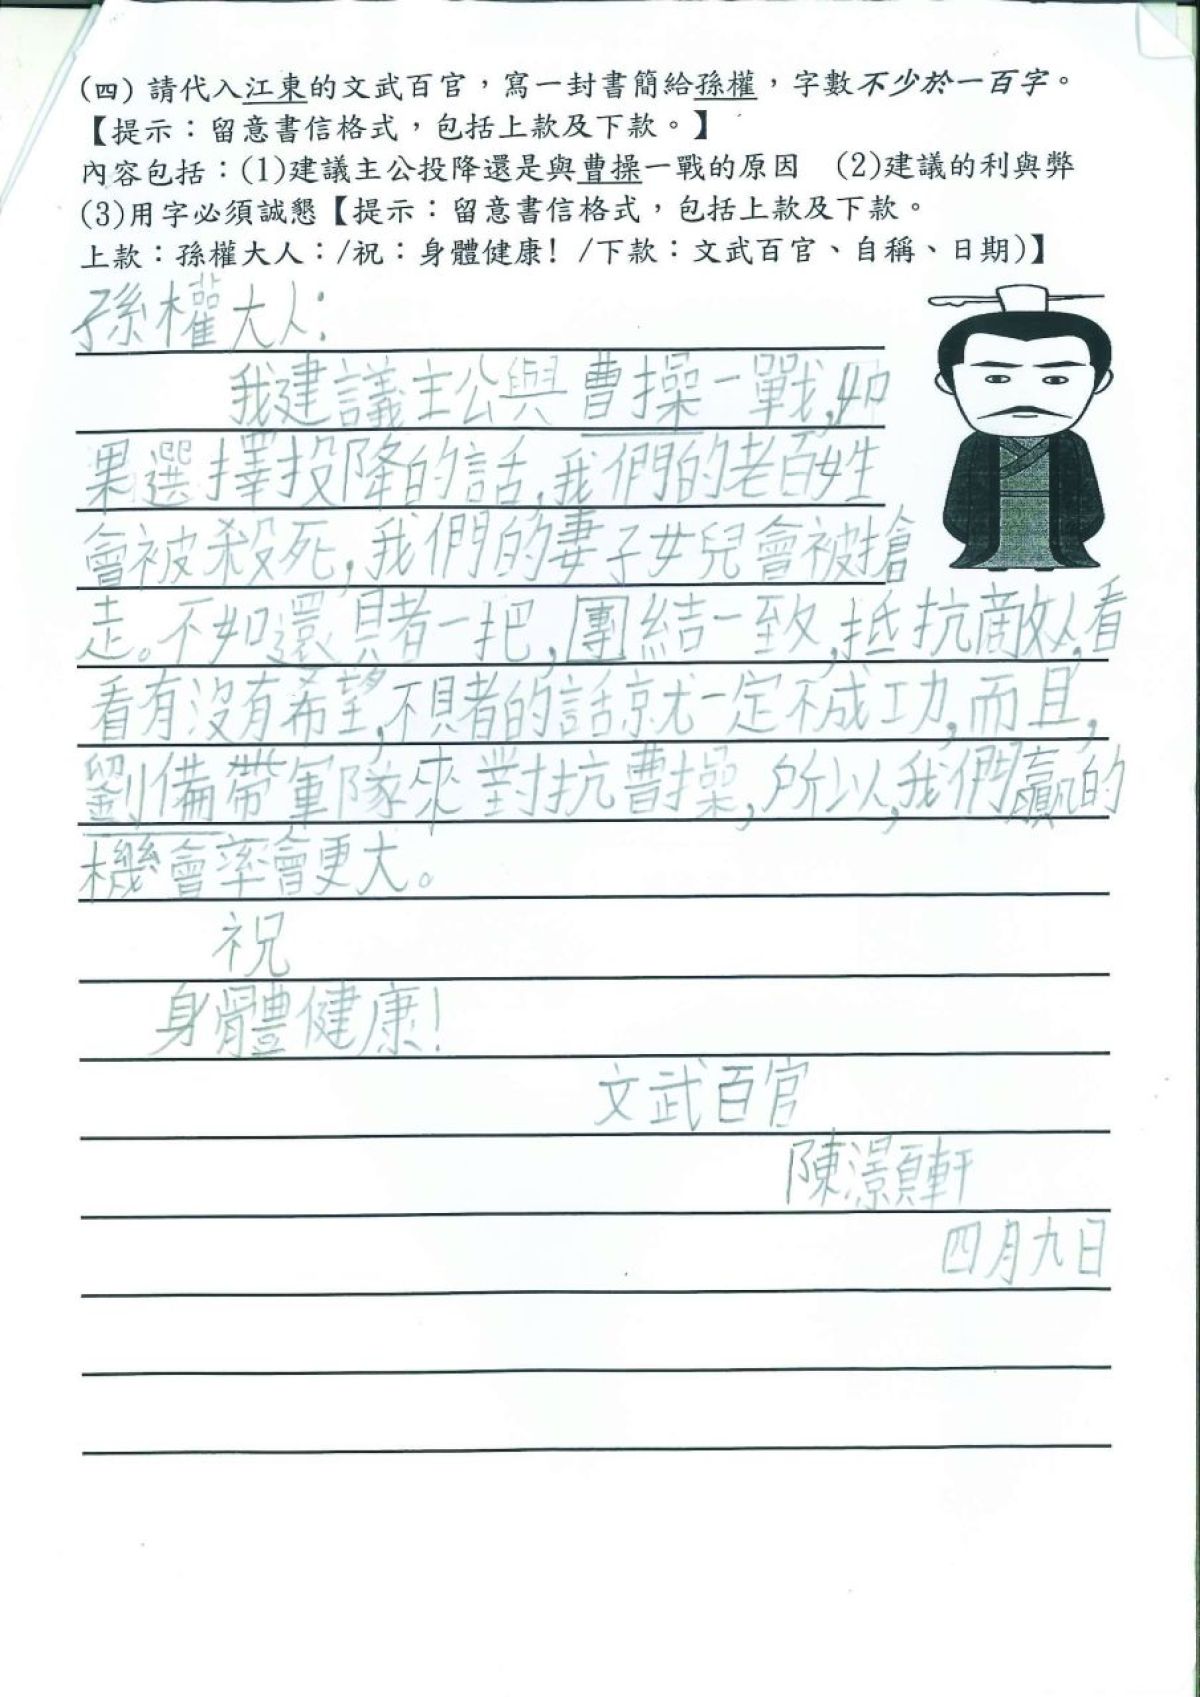 (四) 請代入江東的文武百官，寫一封書簡給孫權，字數不少於一百字。
【提示：留意書信格式，包括上款及下款。】
內容包括：(1)建議主公投降還是與曹操一戰的原因　(2)建議的利與弊
(3)用字必須誠懇【提示：留意書信格式，包括上款及下款。
上款：孫權大人：/祝：身體健康! /下款：文武百官、自稱、日期)】
孫權大人：
我建議主公與曹操一戰,如
果選擇投降的話,我們的老百姓
會被殺死,我們的妻子女兒會被搶
走。不如還賭一把,團結一致,抵抗敵人,看
看有沒有希望,不賭的話就一定不成功,而且,
劉備帶軍隊來對抗曹操,所以,我們贏的
機會率會更大。
祝
身體健康!
文武百官
陳澋軒
四月九日